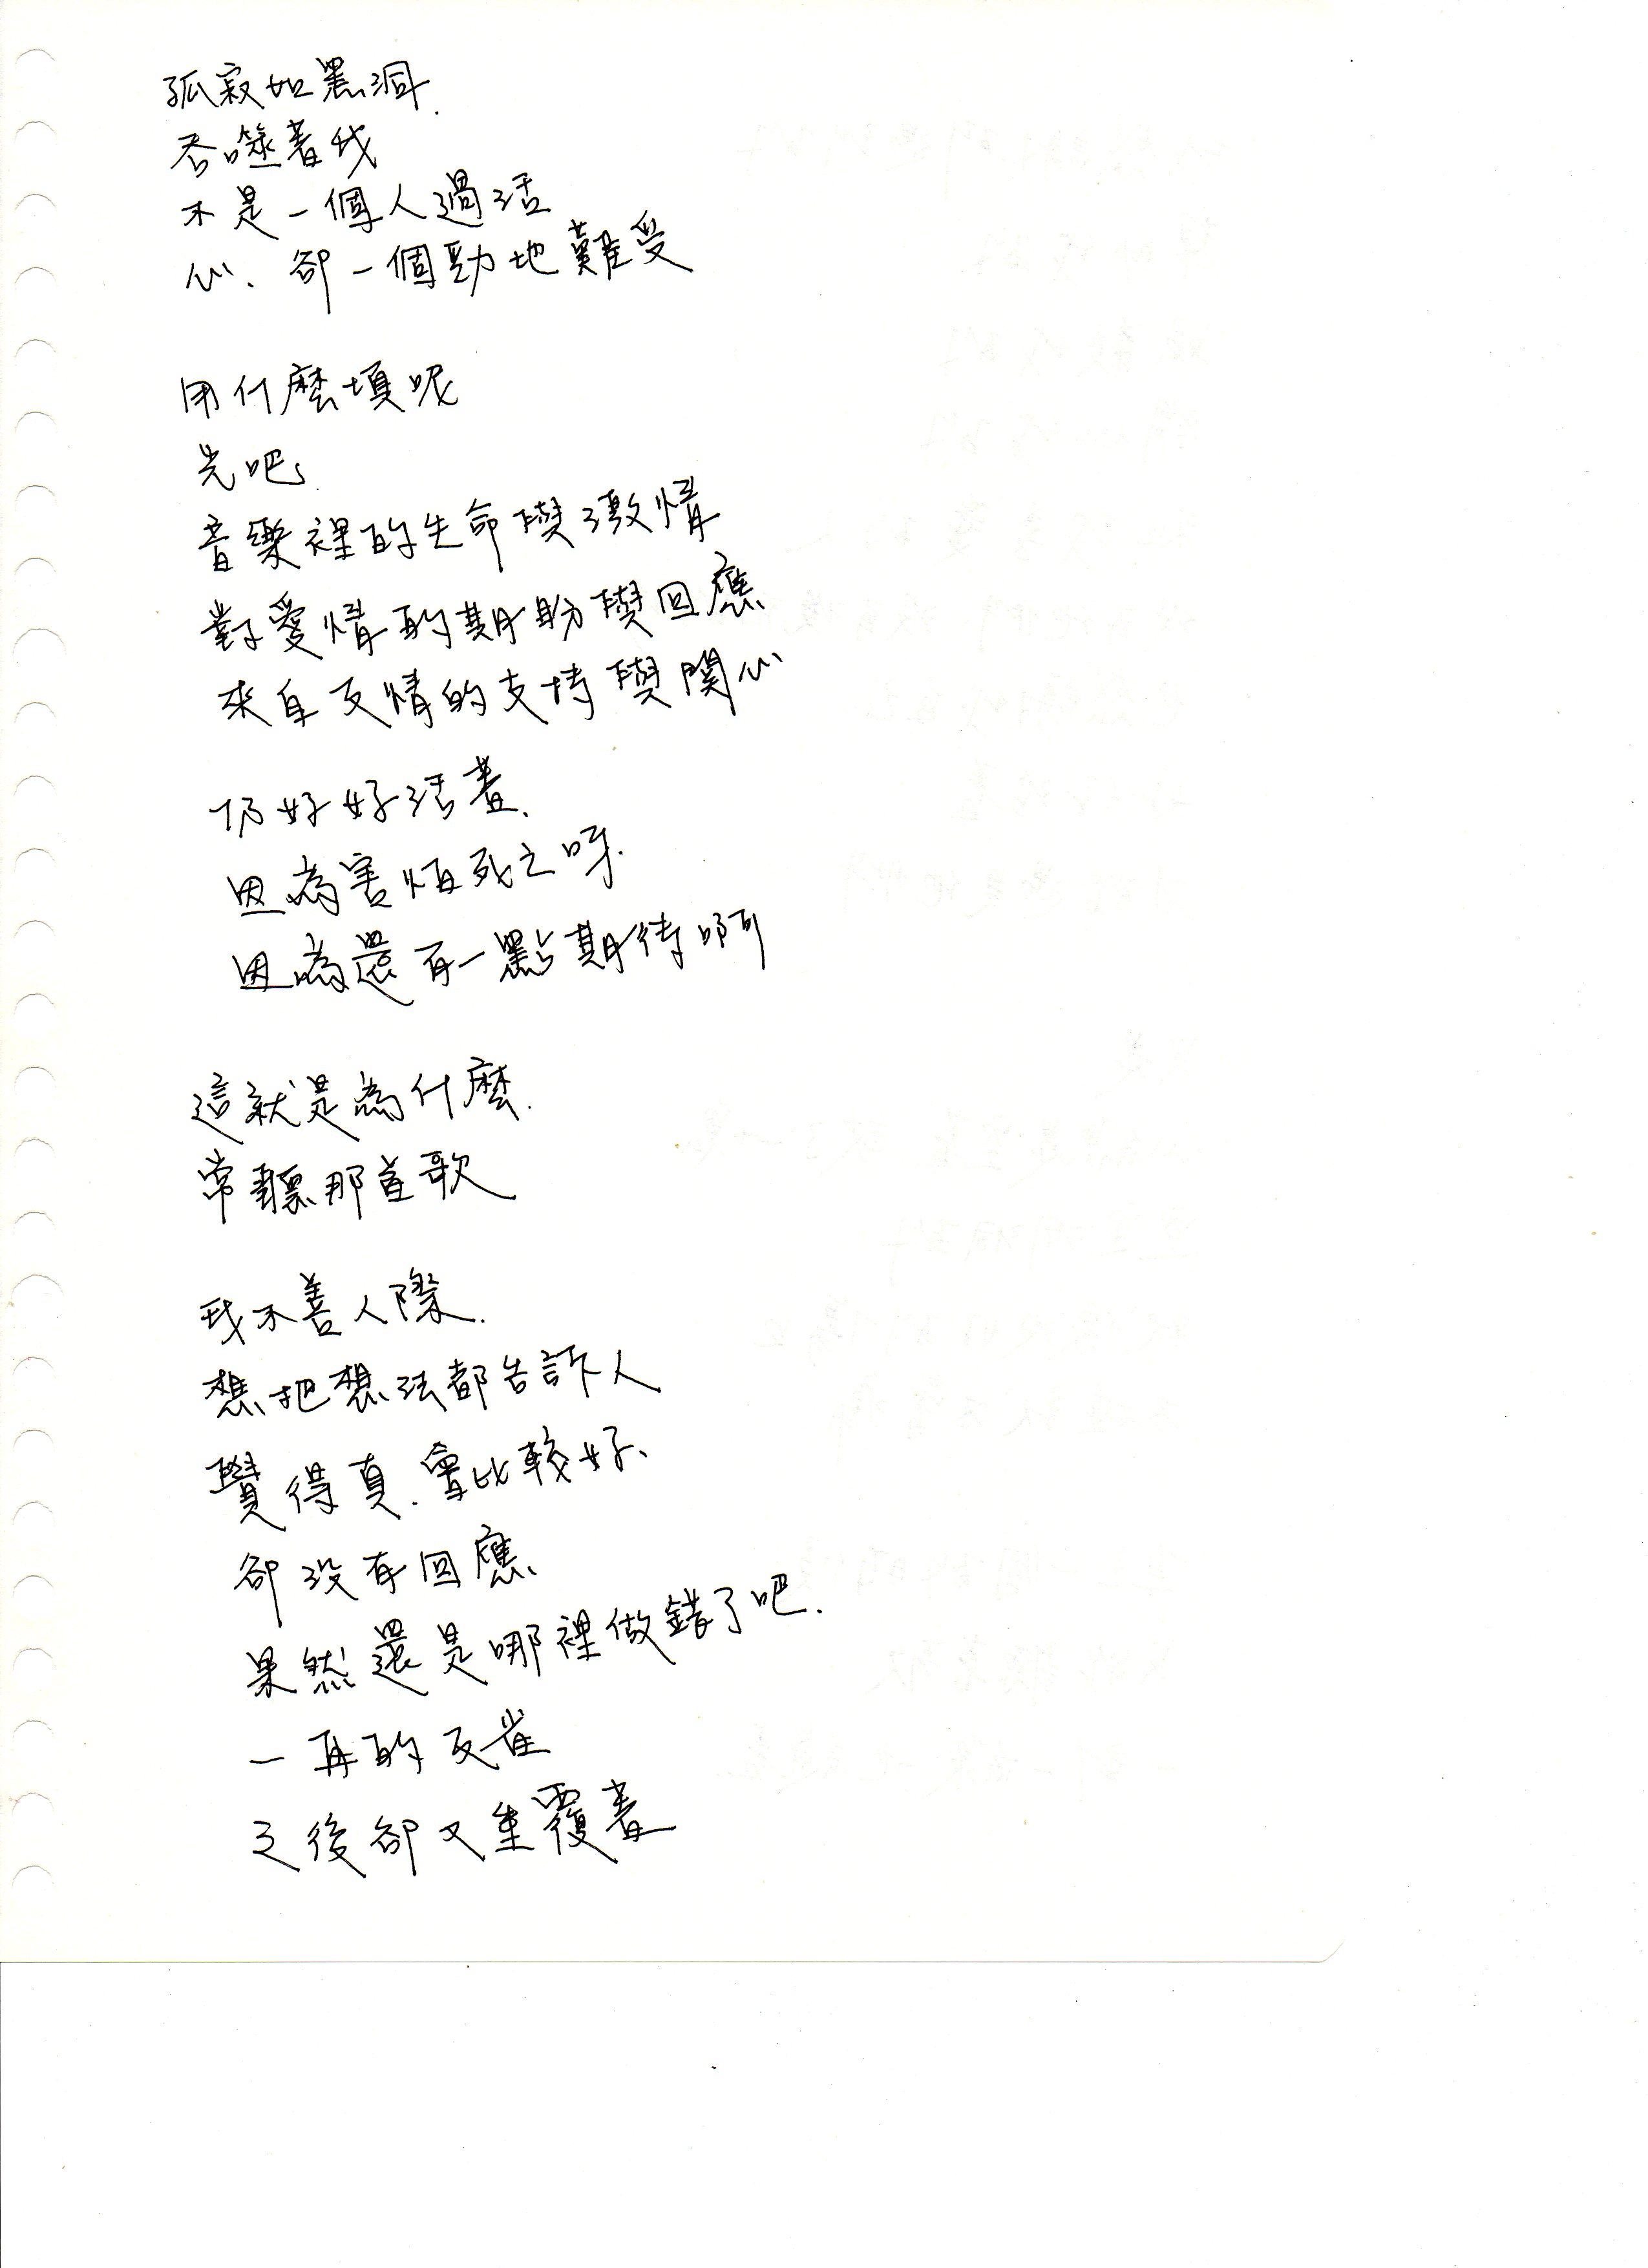 孤寂如黑洞.
吞噬著我
不是一個人過活
心、卻一個勁地難受
用什麼填呢
光吧
音樂裡的生命與激情
對愛情的期盼與回應
來自友情的支持與關心
仍好好活著.
因為害怕死亡呀.
因為還有一點期待啊
這就是為什麼.
常聽那首歌
我不善人際.
想把想法都告訴人
覺得真.會比較好、
卻沒有回應、
果然還是哪裡做錯了吧.
一再的反省
之後卻又重覆著